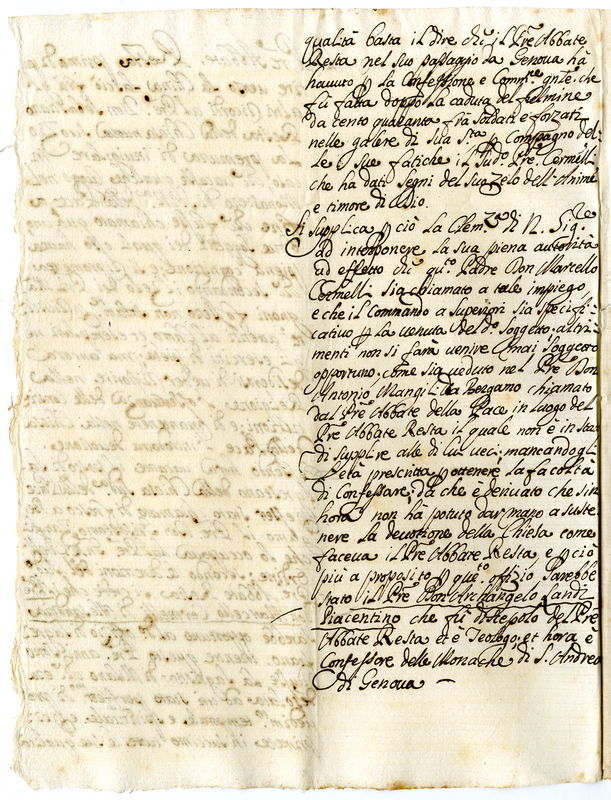 qualità basta il dire che il Pre Abbate
Resta nel suo passaggio da Genova hà
havuto p la Confessione e Comm.ne gnte. che
fù fatta doppo la caduta del fulmine
da cento quaranta frà soldati e forzati
nelle galere di sua S.tà p Compagno del-
le sue fatiche il sud.o Pre. Cermelli
che ha dati segni del suo zelo dell'Anime
e timore di Dio.
Si supplica p ciò la Clem.za di N. Sig.re
ad interponere la sua piena autorità
ad effetto che qu.to Padre Don Marcello
Cermelli sia chiamato a tale impiego,
e che il Commando a Superiori sia specifi-
cativo p la venuta del d.o Soggetto, altri-
menti non si farà venire mai soggetto
opportuno, come s'è veduto nel Pre Don
Antonio Mangili da Bergamo chiamato
dal Pre Abbate della Pace in luogo del
Pre Abbate Resta il quale non è in stato
di supplire alle di lui veci, mancandogli
l'età prescritta p ottenere la facoltà
di Confessare; dà che è derivato che sin
hora non hà potuto dar mano a suste
nere la devotione della Chiesa come
faceva il Pre Abbate Resta e p ciò
più a proposito p que.to offizio sarebbe
stato il Pre Don Archangelo Landi
Piacentino che fù discepolo del Pre
Abbate Resta et è Teologo, et hora è
Confessore delle Monache di S. Andrea
di Genova —